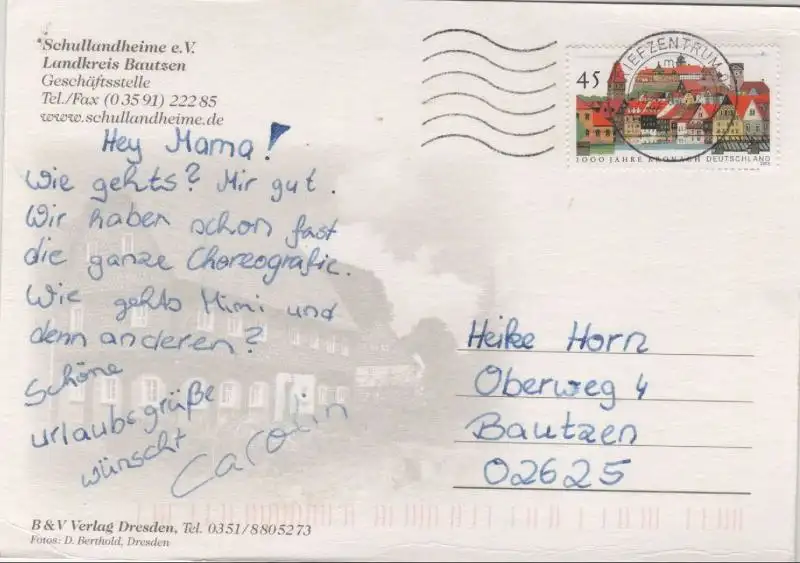 Schullandheime e.V.
Landkreis Bautzen
Geschäftsstelle
Tel./Fax (0 35 91) 222 85
www.schullandheime.de
Hey Mama!
Wie gehts? Mir gut.
Wir haben schon fast
die ganze Choreografie.
Wie gehts Mimi und
denn anderen?
Schöne
urlaubsgrüße
wünscht
Carolin
B & V Verlag Dresden, Tel. 03 51/8 80 52 73
Fotos: D. Berthold, Dresden
IEFZENTRUM
45
1000 JAHRE KRONACH DEUTSCHLAND
Heike Horn
Oberweg 4
Bautzen
02625